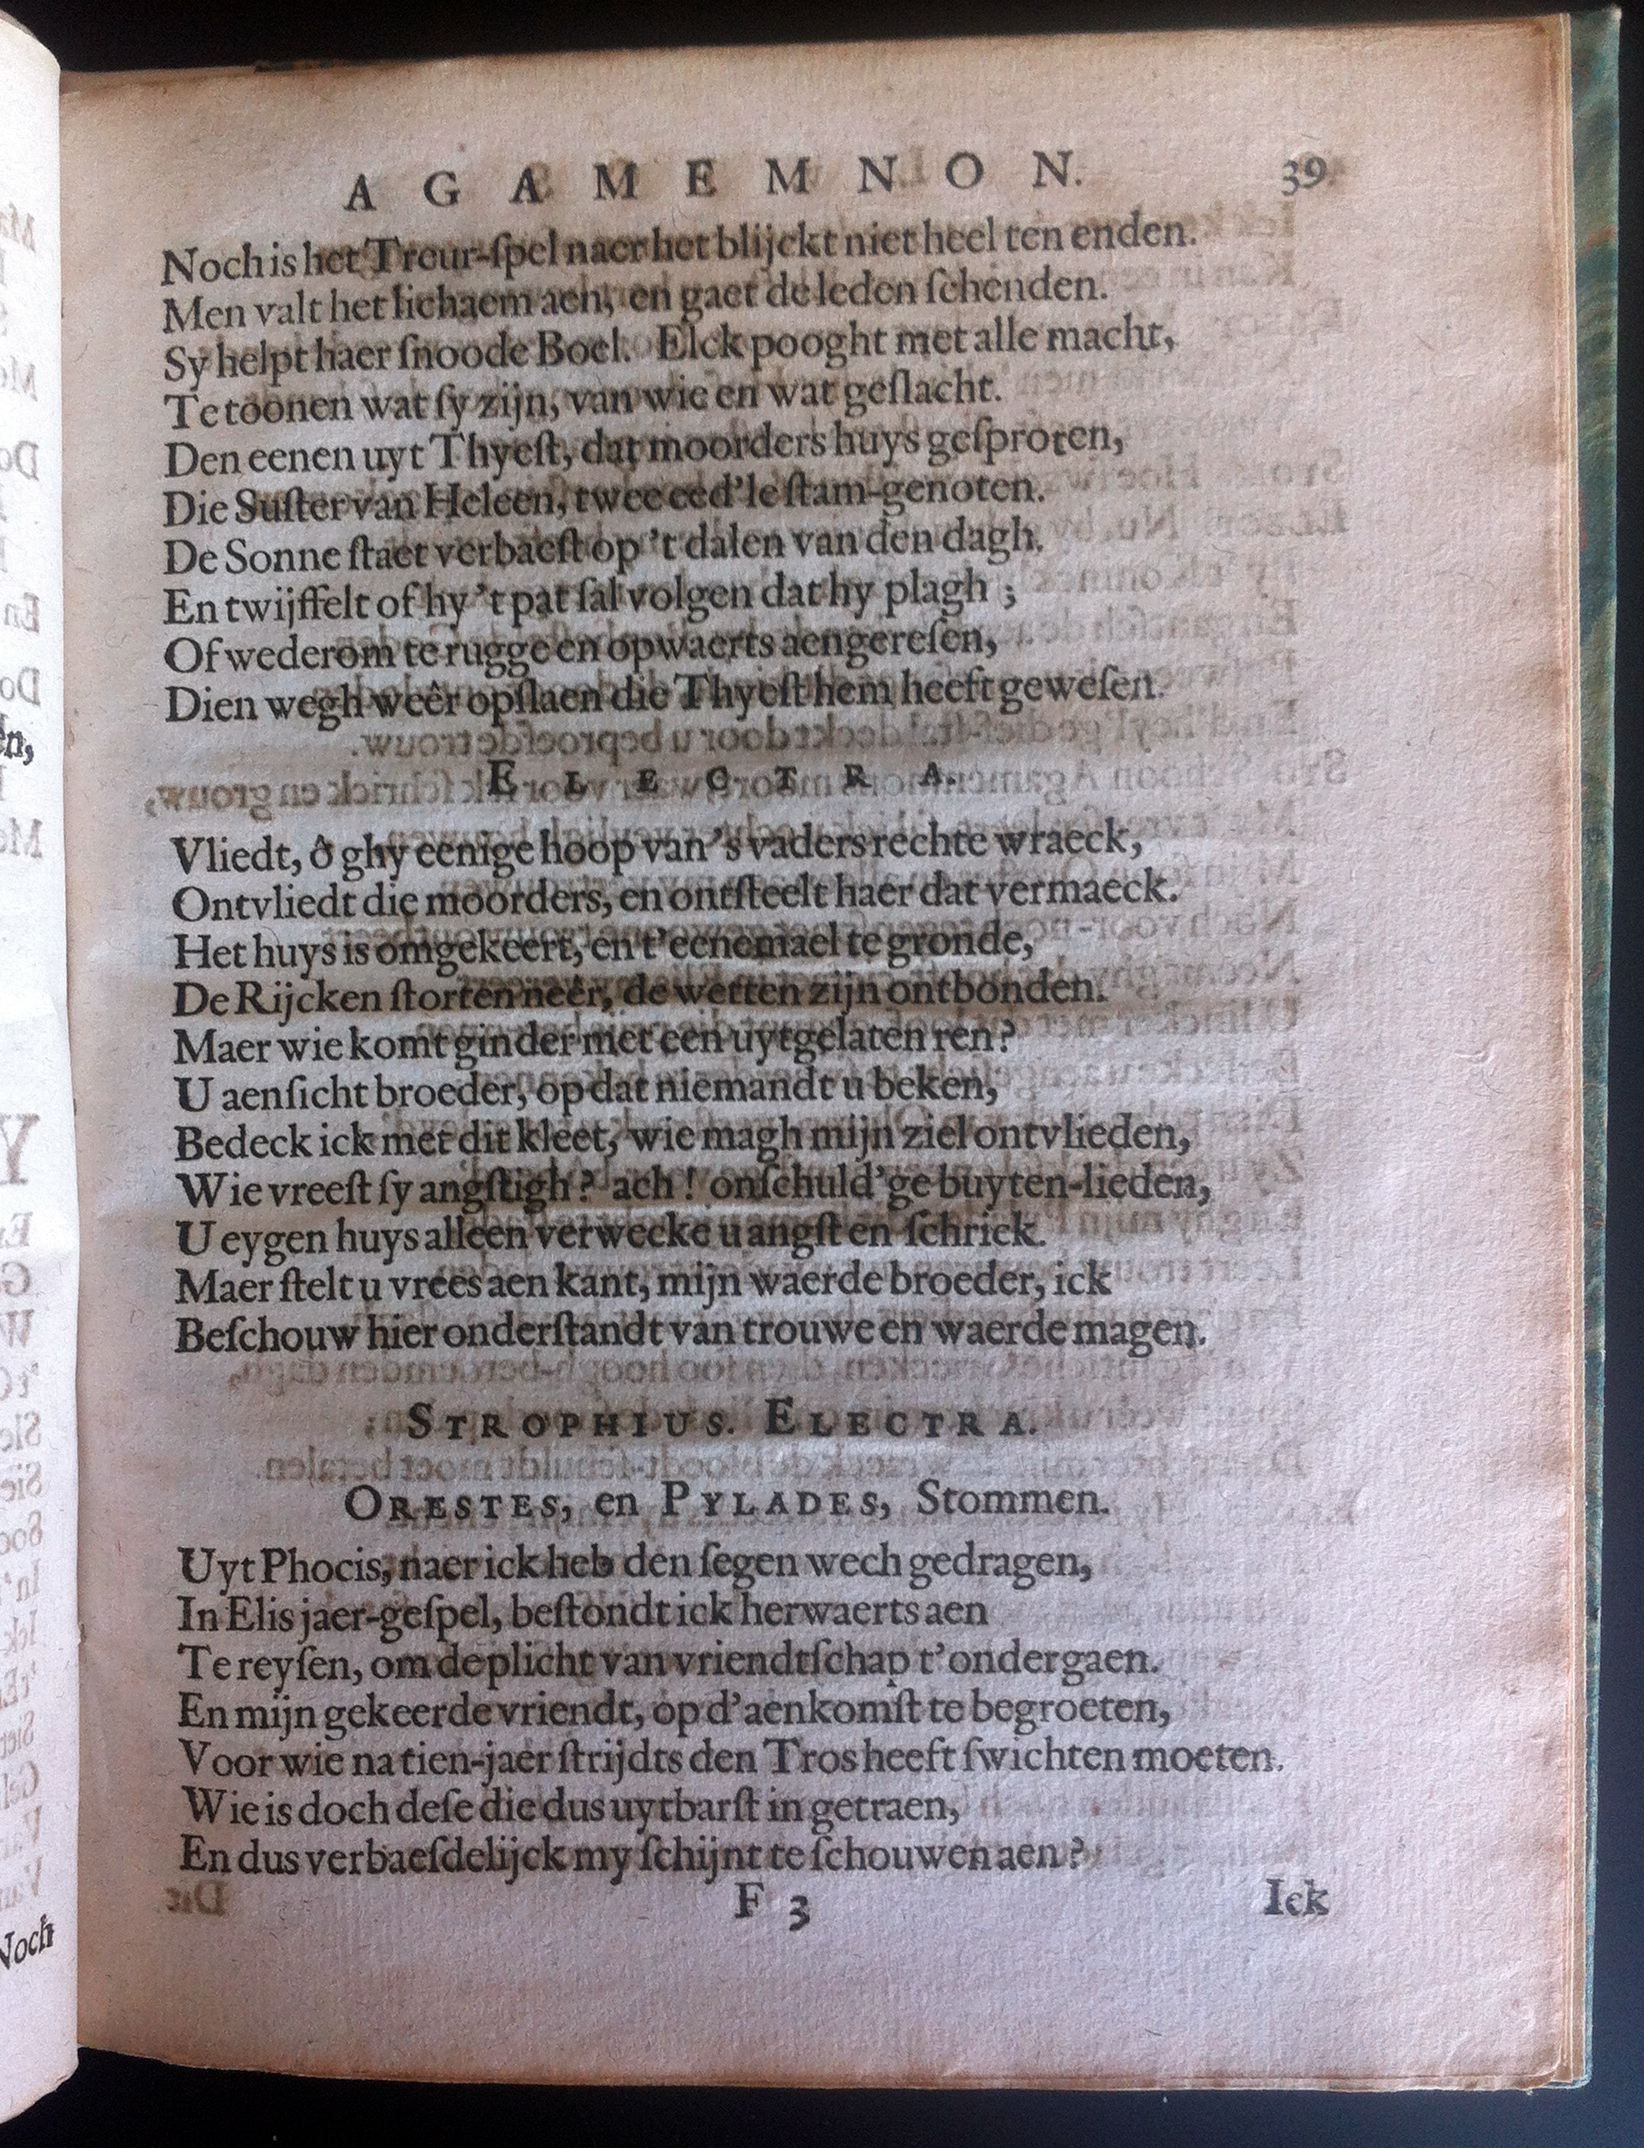 AGAMEMNON. 39
Noch is het Treur-ſpel naer het blijckt niet heel ten enden.
Men valt het lichaem aen, en gaet de leden ſchenden.
Sy helpt haer ſnoode Boel. Elck pooght met alle macht,
Te toonen wat ſy zijn, van wie en wat geſlacht.
Den eenen uyt Thyeſt, dat moorders huys geſproten,
Die Suſter van Heleen, twee eed'le ſtam-genoten.
De Sonne ſtaet verbaeſt op 't dalen van den dagh.
En twijffelt of hy 't pat ſal volgen dat hy plagh ;
Of wederom te rugge en opwaerts aengereſen,
Dien wegh weêr opſlaen die Thyeſt hem heeft geweſen.
ELECTRA.
Vliedt, ô ghy eenige hoop van 's vaders rechte wraeck,
Ontvliedt die moorders, en ontſteelt haer dat vermaeck.
Het huys is omgekeert, en t'eenemael te gronde,
De Rijcken ſtorten neêr, de wetten zijn ontbonden.
Maer wie komt ginder met een uytgelaten ren?
U aenſicht broeder, op dat niemandt u beken,
Bedeck ick met dit kleet, wie magh mijn ziel ontvlieden,
Wie vreeſt ſy angſtigh? ach! onſchuld'ge buyten-lieden,
U eygen huys alleen verwecke u angſt en ſchrick.
Maer ſtelt u vrees aen kant, mijn waerde broeder, ick
Beſchouw hier onderſtandt van trouwe en waerde magen.
STROPHIUS. ELECTRA.
ORESTES, en PYLADES, Stommen.
Uyt Phocis, naer ick heb den ſegen wech gedragen,
In Elis jaer-geſpel, beſtondt ick herwaerts aen
Te reyſen, om de plicht van vriendtſchap t'ondergaen.
En mijn gekeerde vriendt, op d'aenkomſt te begroeten,
Voor wie na tien-jaer ſtrijdts den Tros heeft ſwichten moeten.
Wie is doch deſe die dus uytbarſt in getraen,
En dus verbaeſdelijck my ſchijnt te ſchouwen aen?
F 3 Ick